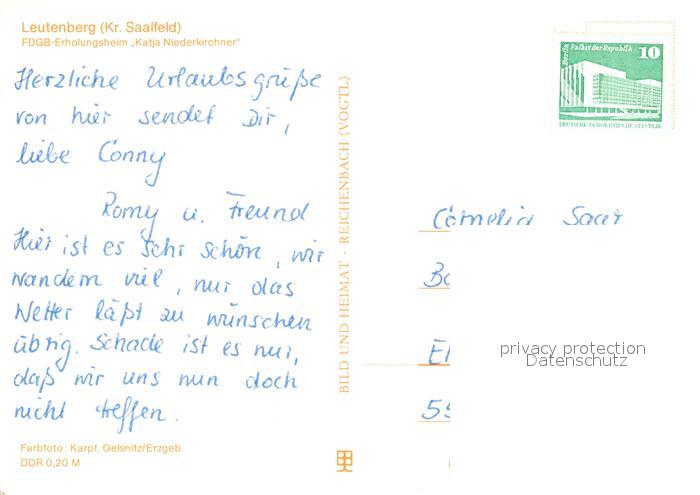 Leutenberg (Kr. Saalfeld)
FDGB-Erholungsheim „Katja Niederkirchner"
Herzliche Urlaubsgrüße
von hier sendet Dir,
liebe Conny
Romy u. Freund
Hier ist es sehr schön, wir
wandern viel, nur das
Wetter läßt zu wünschen
übrig. Schade ist es nur,
daß wir uns nun doch
nicht treffen.
Farbfoto: Karpf, Oelsnitz/Erzgeb.
DDR 0,20 M
BILD UND HEIMAT · REICHENBACH (VOGTL)
Berlin
Palast der Republik
10
DEUTSCHE DEMOKRATISCHE REPUBLIK
Cornelia
privacy protection
Datenschutz